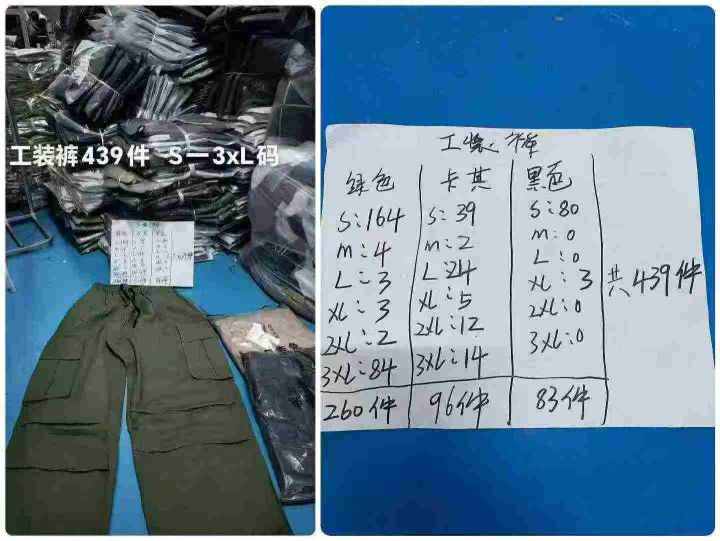 工装裤439件 S—3xL码
工装裤
绿色
S:164
M:4
L:3
XL:3
2XL:2
3XL:84
260件
卡其
S:39
M:2
L:24
XL:5
2XL:12
3XL:14
96件
黑色
S:80
M:0
L:0
XL:3
2XL:0
3XL:0
83件
共439件